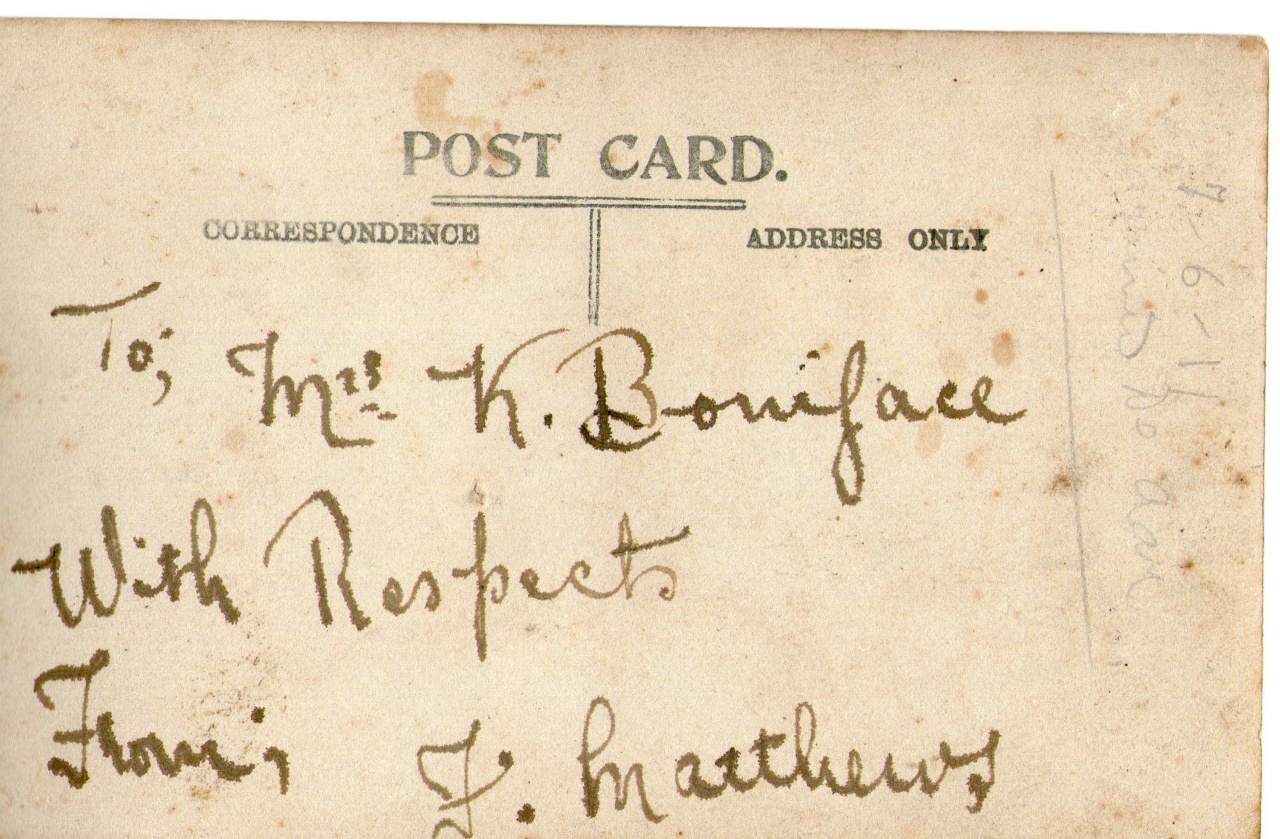 POST CARD.
CORRESPONDENCE ADDRESS ONLY
To; Mrs K. Boniface
With Respects
From; J. Matthews